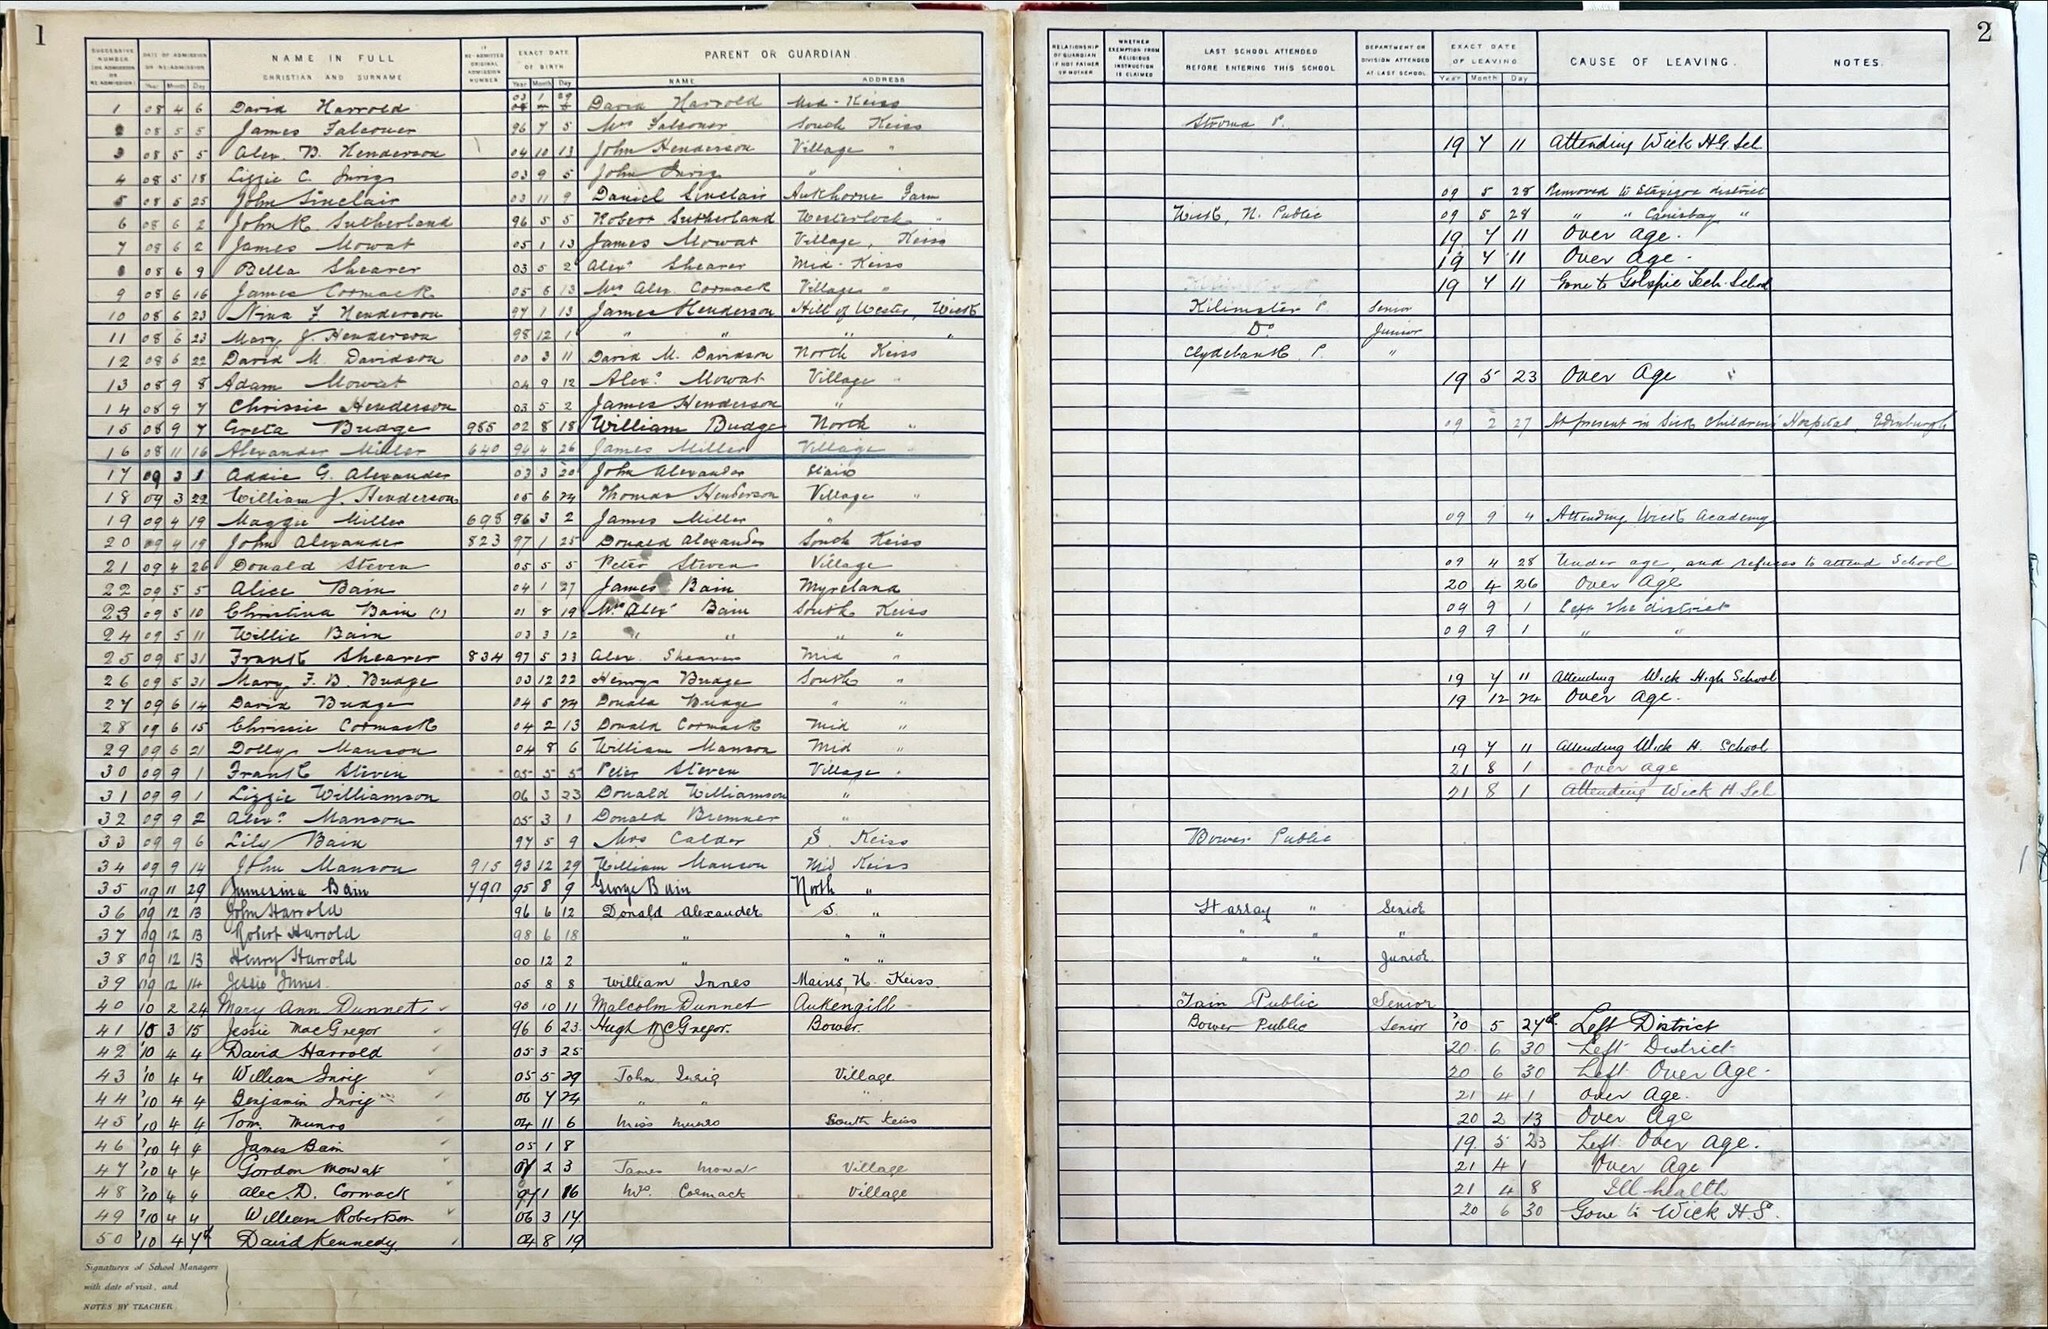 1
SUCCESSIVE NUMBER (ON ADMISSION OR RE-ADMISSION) DATE OF ADMISSION OR RE-ADMISSION Year Month Day NAME IN FULL CHRISTIAN AND SURNAME IF RE-ADMITTED ORIGINAL ADMISSION NUMBER EXACT DATE OF BIRTH Year Month Day PARENT OR GUARDIAN NAME ADDRESS
1 08 4 6 David Harrold 03 1 29 David Harrold Mid-Keiss
2 08 5 5 James Falconer 96 7 5 Mrs Falconer South Keiss
3 08 5 5 Alex. B. Henderson 04 10 13 John Henderson Village "
4 08 5 18 Lizzie C. Inrig 03 9 5 John Inrig "
5 08 5 25 John Sinclair 03 11 9 Daniel Sinclair Aukhorne Farm
6 08 6 2 John R. Sutherland 96 5 5 Robert Sutherland Westerloch "
7 08 6 2 James Mowat 05 1 13 James Mowat Village, Keiss
8 08 6 9 Bella Shearer 03 5 2 Alexr Shearer Mid-Keiss
9 08 6 16 James Cormack 05 6 13 Mrs Alex. Cormack Village "
10 08 6 23 Nina F Henderson 97 1 13 James Henderson Hill of Wester, Wick
11 08 6 23 Mary J. Henderson 98 12 1 " " " "
12 08 6 22 David M. Davidson 00 3 11 David M. Davidson North Keiss
13 08 9 8 Adam Mowat 04 9 12 Alexr Mowat Village "
14 08 9 7 Chrissie Henderson 03 5 2 James Henderson "
15 08 9 7 Greta Budge 985 02 8 18 William Budge North "
16 08 11 16 Alexander Miller 640 94 4 26 James Miller Village "
17 09 3 1 Addie G. Alexander 03 3 20 John Alexander Stain
18 09 3 22 William J. Henderson 05 6 24 Thomas Henderson Village "
19 09 4 19 Maggie Miller 698 96 3 2 James Miller "
20 09 4 19 John Alexander 823 97 1 25 Donald Alexander South Keiss
21 09 4 26 Donald Steven 05 5 5 Peter Steven Village
22 09 5 5 Alice Bain 04 1 27 James Bain Myreland
23 09 5 10 Christina Bain (1) 01 8 19 Mrs Alexr Bain South Keiss
24 09 5 11 Willie Bain 03 3 12 " " " "
25 09 5 31 Frank Shearer 834 97 5 23 Alex. Shearer Mid "
26 09 5 31 Mary F. B. Budge 03 12 22 Henry Budge South "
27 09 6 14 David Budge 04 5 24 Donald Budge " "
28 09 6 15 Chrissie Cormack 04 2 13 Donald Cormack Mid "
29 09 6 21 Dolly Manson 04 8 6 William Manson Mid "
30 09 9 1 Frank Steven 05 5 5 Peter Steven Village "
31 09 9 1 Lizzie Williamson 06 3 23 Donald Williamson "
32 09 9 2 Alexr Manson 05 3 1 Donald Bremner "
33 09 9 6 Lily Bain 97 5 9 Mrs Calder S. Keiss
34 09 9 14 John Manson 915 93 12 29 William Manson Mid Keiss
35 09 11 29 Jamesina Bain 790 95 8 9 George Bain North "
36 09 12 13 John Harrold 96 6 12 Donald Alexander S. "
37 09 12 13 Robert Harrold 98 6 18 " " "
38 09 12 13 Henry Harrold 00 12 2 " " "
39 09 12 14 Jessie Innes 05 8 8 William Innes Mains, N. Keiss
40 10 2 24 Mary Ann Dunnet 98 10 11 Malcolm Dunnet Aukengill
41 10 3 15 Jessie MacGregor 96 6 23 Hugh McGregor. Bower.
42 '10 4 4 David Harrold 05 3 25
43 '10 4 4 William Inrig 05 5 29 John Inrig Village
44 '10 4 4 Benjamin Inrig 06 7 24 " " "
45 '10 4 4 Tom. Munro 04 11 6 Miss Munro South Keiss
46 '10 4 4 James Bain 05 1 8
47 '10 4 4 Gordon Mowat 07 2 3 James Mowat Village
48 '10 4 4 Alec D. Cormack 07 1 16 Mrs. Cormack Village
49 '10 4 4 William Robertson 06 3 14
50 '10 4 7th David Kennedy. 04 8 19
Signatures of School Managers
with date of visit, and
NOTES BY TEACHER
2
RELATIONSHIP OF GUARDIAN IF NOT FATHER OR MOTHER WHETHER EXEMPTION FROM RELIGIOUS INSTRUCTION IS CLAIMED LAST SCHOOL ATTENDED BEFORE ENTERING THIS SCHOOL DEPARTMENT OR DIVISION ATTENDED AT LAST SCHOOL EXACT DATE OF LEAVING Year Month Day CAUSE OF LEAVING. NOTES.
Stroma P.
19 7 11 Attending Wick H.G. Sch
09 5 28 Removed to Staxigoe district
Wick, N. Public 09 5 28 " " Canisbay "
19 7 11 Over Age.
19 7 11 Over Age.
19 7 11 Gone to Golspie Tech. School
Kilimster P Senior
Do Junior
Clydebank P. "
19 5 23 Over Age
09 2 27 At present in Sick Children's Hospital, Edinburgh
09 9 4 Attending Wick Academy
09 4 28 Under age, and refuses to attend School
20 4 26 Over Age
09 9 1 Left the district
09 9 1 " "
19 7 11 Attending Wick High School
19 12 24 Over Age.
19 7 11 Attending Wick H. School
21 8 1 Over age
21 8 1 Attending Wick H. Sch
Bower Public
Harray " Senior
" " "
" " Junior
Tain Public Senior
Bower Public Senior '10 5 27th Left District
20 6 30 Left District
20 6 30 Left Over Age.
21 4 1 Over Age.
20 2 13 Over Age
19 5 23 Left Over Age.
21 4 1 Over Age
21 4 8 Ill health
20 6 30 Gone to Wick H.S.